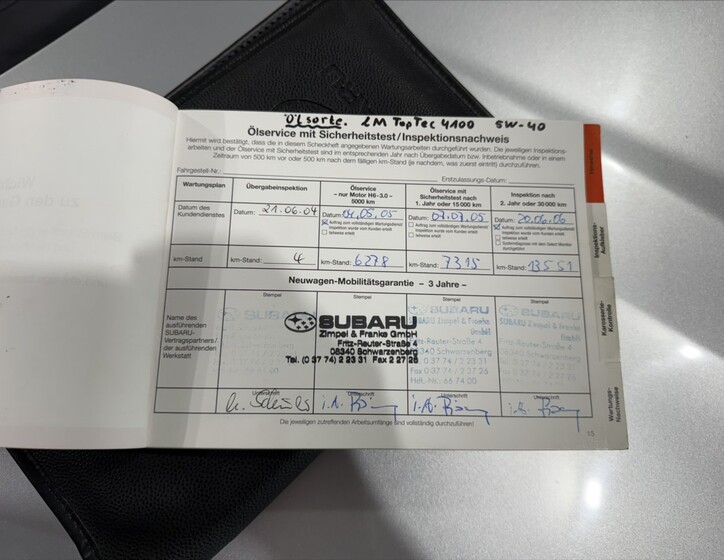 Ölsorte. LM TopTec 4100 5W-40
Ölservice mit Sicherheitstest/Inspektionsnachweis
Hiermit wird bestätigt, dass die in diesem Scheckheft angegebenen Wartungsarbeiten durchgeführt wurden. Die jeweiligen Inspektions-
arbeiten und der Ölservice mit Sicherheitstest sind im entsprechenden Jahr nach Übergabedatum bzw. Inbetriebnahme oder in einem
Zeitraum von 500 km vor oder 500 km nach dem fälligen km-Stand (je nachdem, was zuerst eintritt) durchzuführen.
Fahrgestell-Nr.: Erstzulassungs-Datum:
Wartungsplan Übergabeinspektion Ölservice – nur Motor H6-3.0 – 5000 km Ölservice mit Sicherheitstest nach 1. Jahr oder 15000 km Inspektion nach 2. Jahr oder 30000 km
Datum des Kundendienstes Datum: 21.06.04 Datum: 04.05.05 Datum: 07.07.05 Datum: 20.06.06
Auftrag zum vollständigen Wartungsdienst/
Inspektion wurde vom Kunden erteilt
teilweise erteilt
km-Stand km-Stand: 4 km-Stand: 6278 km-Stand: 7315 km-Stand: 13551
Neuwagen-Mobilitätsgarantie – 3 Jahre –
Stempel Stempel Stempel Stempel
Name des
ausführenden
SUBARU-
Vertragspartners/
der ausführenden
Werkstatt
SUBARU
Zimpel & Franke GmbH
Fritz-Reuter-Straße 4
08340 Schwarzenberg
Tel. (0 37 74) 2 23 31 Fax 2 27 26
SUBARU
Zimpel & Franke
GmbH
Fritz-Reuter-Straße 4
08340 Schwarzenberg
0 37 74 / 2 23 31
Fax 0 37 74 / 2 27 26
Hdl.-Nr.: 66 74 00
SUBARU
Unterschrift Unterschrift Unterschrift Unterschrift
Die jeweiligen zutreffenden Arbeitsumfänge sind vollständig durchzuführen!
15
Inspektions-
Aufkleber
Karosserie-
Kontrolle
Wartungs-
Nachweise